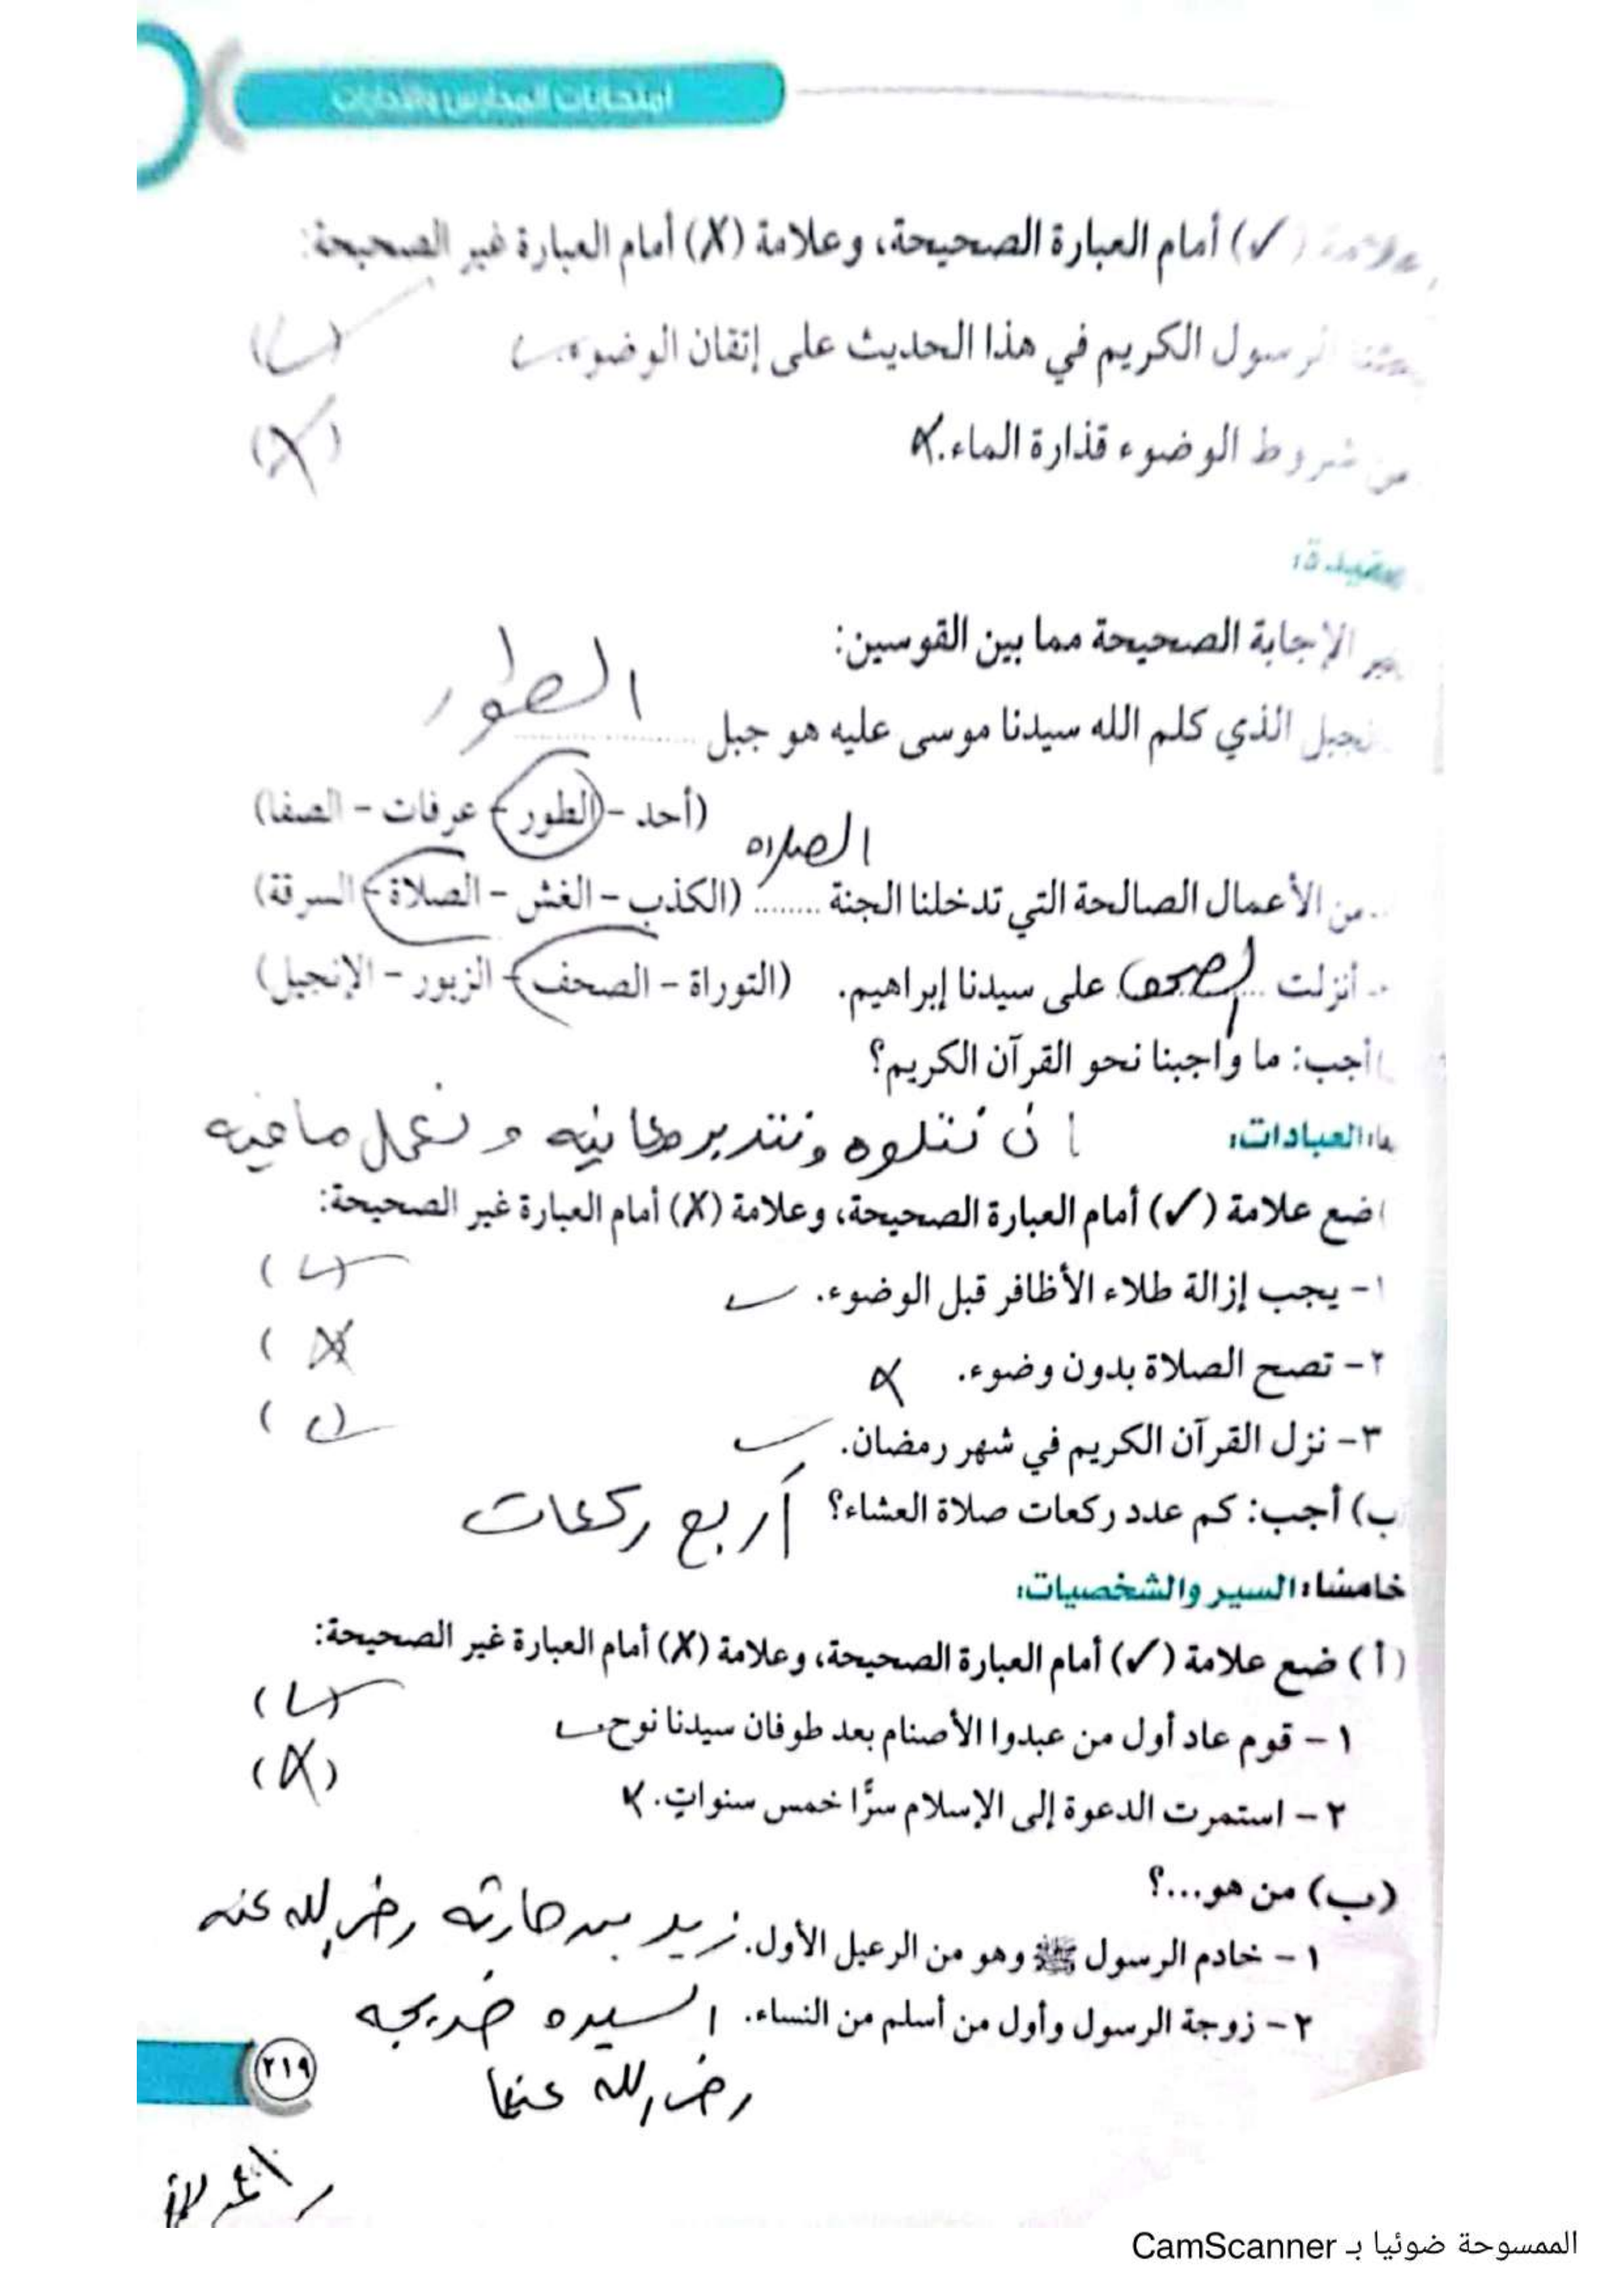 امتحانات المدارس والإدارات
(✓) أمام العبارة الصحيحة، وعلامة (X) أمام العبارة غير الصحيحة:
الرسول الكريم في هذا الحديث على إتقان الوضوء. ✓ (✓)
من شروط الوضوء قذارة الماء. X (X)
العقيدة:
الإجابة الصحيحة مما بين القوسين:
الجبل الذي كلم الله سيدنا موسى عليه هو جبل ........ الطور
(أحد - الطور - عرفات - الصفا)
من الأعمال الصالحة التي تدخلنا الجنة ........ الصلاه (الكذب - الغش - الصلاة - السرقة)
أنزلت ........ الصحف على سيدنا إبراهيم. (التوراة - الصحف - الزبور - الإنجيل)
أجب: ما واجبنا نحو القرآن الكريم؟
العبادات: ان نتلوه ونتدبر معانيه و نعمل ما فيه
ضع علامة (✓) أمام العبارة الصحيحة، وعلامة (X) أمام العبارة غير الصحيحة:
١- يجب إزالة طلاء الأظافر قبل الوضوء. ✓ (✓)
٢- تصح الصلاة بدون وضوء. X (X)
٣- نزل القرآن الكريم في شهر رمضان. ✓ (✓)
ب) أجب: كم عدد ركعات صلاة العشاء؟ أربع ركعات
خامسًا: السير والشخصيات:
(أ) ضع علامة (✓) أمام العبارة الصحيحة، وعلامة (X) أمام العبارة غير الصحيحة:
١ - قوم عاد أول من عبدوا الأصنام بعد طوفان سيدنا نوح. ✓ (✓)
٢ - استمرت الدعوة إلى الإسلام سرًّا خمس سنواتٍ. X (X)
(ب) من هو...؟
١ - خادم الرسول ﷺ وهو من الرعيل الأول. زيد بن حارثه رضي الله عنه
٢ - زوجة الرسول وأول من أسلم من النساء. السيده خديجه
رضي الله عنها
٢١٩
الممسوحة ضوئيا بـ CamScanner